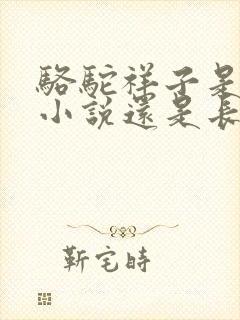 駱駝祥子是
小說還是長
靳宅時